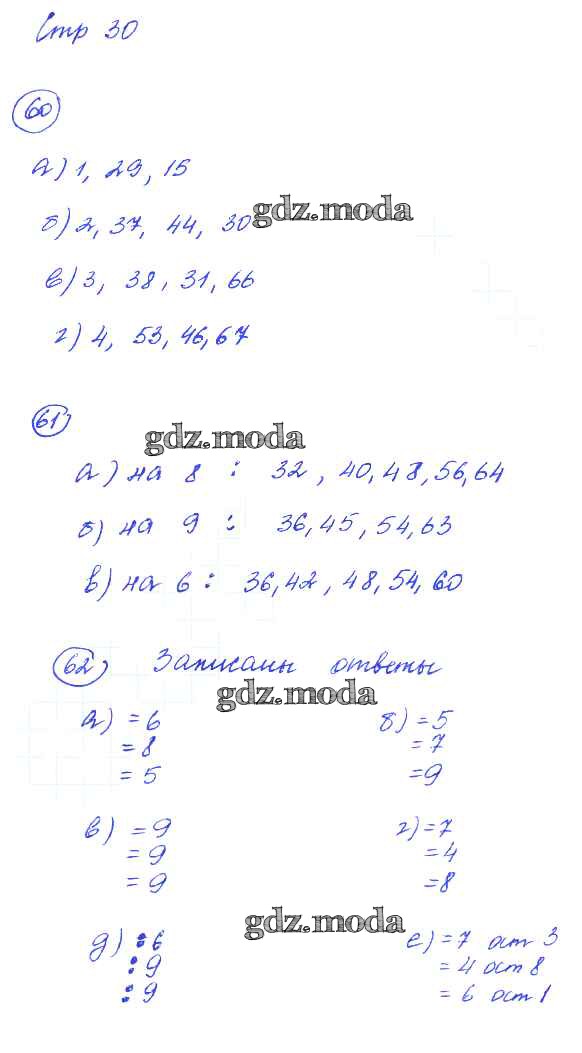 Стр 30
60
а) 1, 29, 15
б) 2, 37, 44, 30
gdz.moda
в) 3, 38, 31, 66
г) 4, 53, 46, 67
61)
gdz.moda
а) на 8 : 32, 40, 48, 56, 64
б) на 9 : 36, 45, 54, 63
в) на 6 : 36, 42, 48, 54, 60
62) Записаны ответы
gdz.moda
а) = 6
= 8
= 5
б) = 5
= 7
= 9
в) = 9
= 9
= 9
г) = 7
= 4
= 8
gdz.moda
д) : 6
: 9
: 9
е) = 7 ост 3
= 4 ост 8
= 6 ост 1